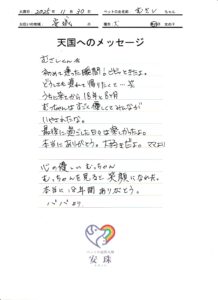 2025年 11月 30日
ペットのお名前 むさし ちゃん
天国へのメッセージ
むさしくんへ
初めて逢った瞬間、ビビッときたよ。
どうしても連れて帰りたくて…笑
うちに来てから18年と8ヶ月
むっちゃんはすごく優しくてみんなが
いやされたな。
最後に過ごした日々は愛しかったよ。
本当にありがとう。大好きだよ。ママより
心の優しいむっちゃん
むっちゃんを見ると笑顔になれた。
本当に18年間ありがとう。
パパより
安珠